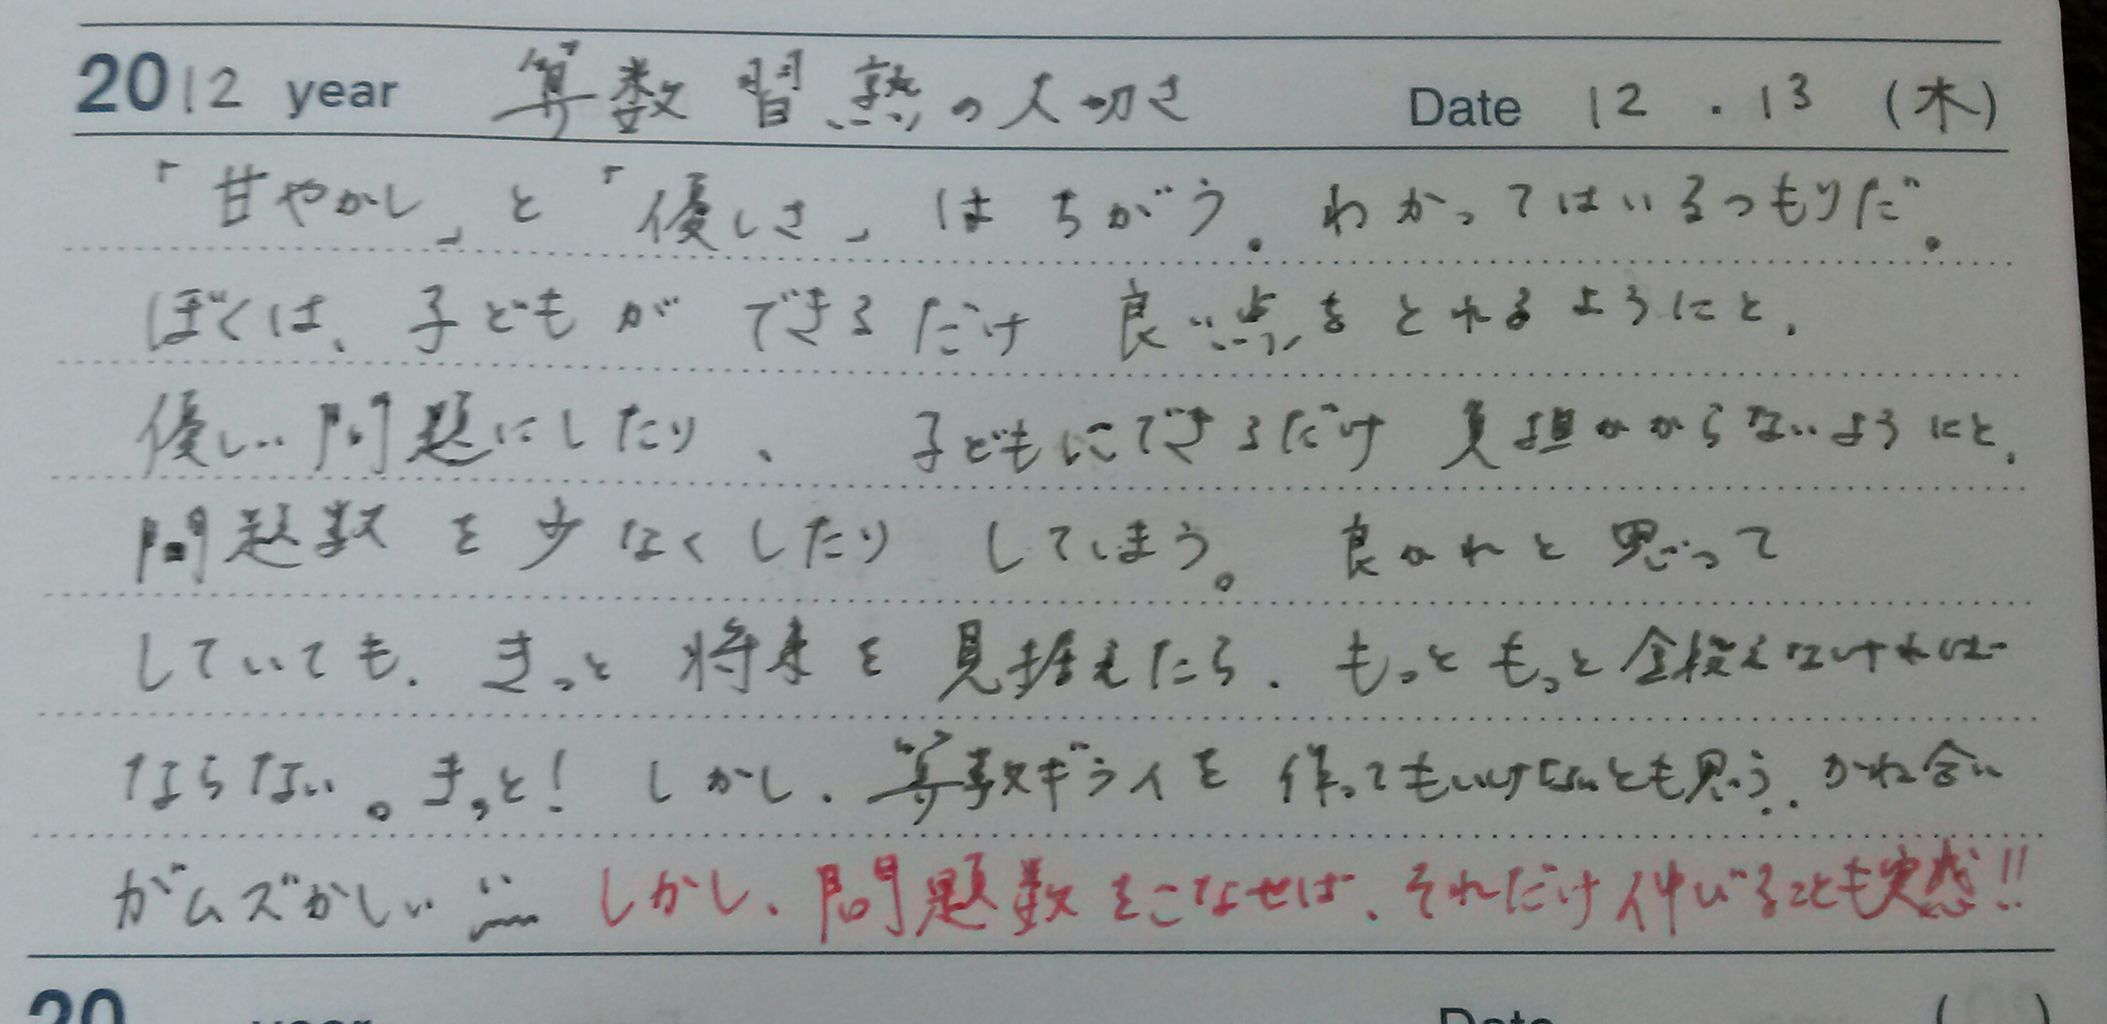 2012 year 算数習熟の大切さ Date 12.13 (木)
「甘やかし」と「優しさ」はちがう。わかってはいるつもりだ。
ぼくは、子どもができるだけ良い点をとれるようにと、
優しい問題にしたり、子どもにできるだけ負担かからないようにと、
問題数を少なくしたりしてしまう。良かれと思って
していても、きっと将来を見据えたら、もっともっと鍛えなければ
ならない。きっと！しかし、算数ギライを作ってもいけないとも思う。かね合い
がムズかしい しかし、問題数をこなせば、それだけ伸びることも実感!!
20 year Date ( )